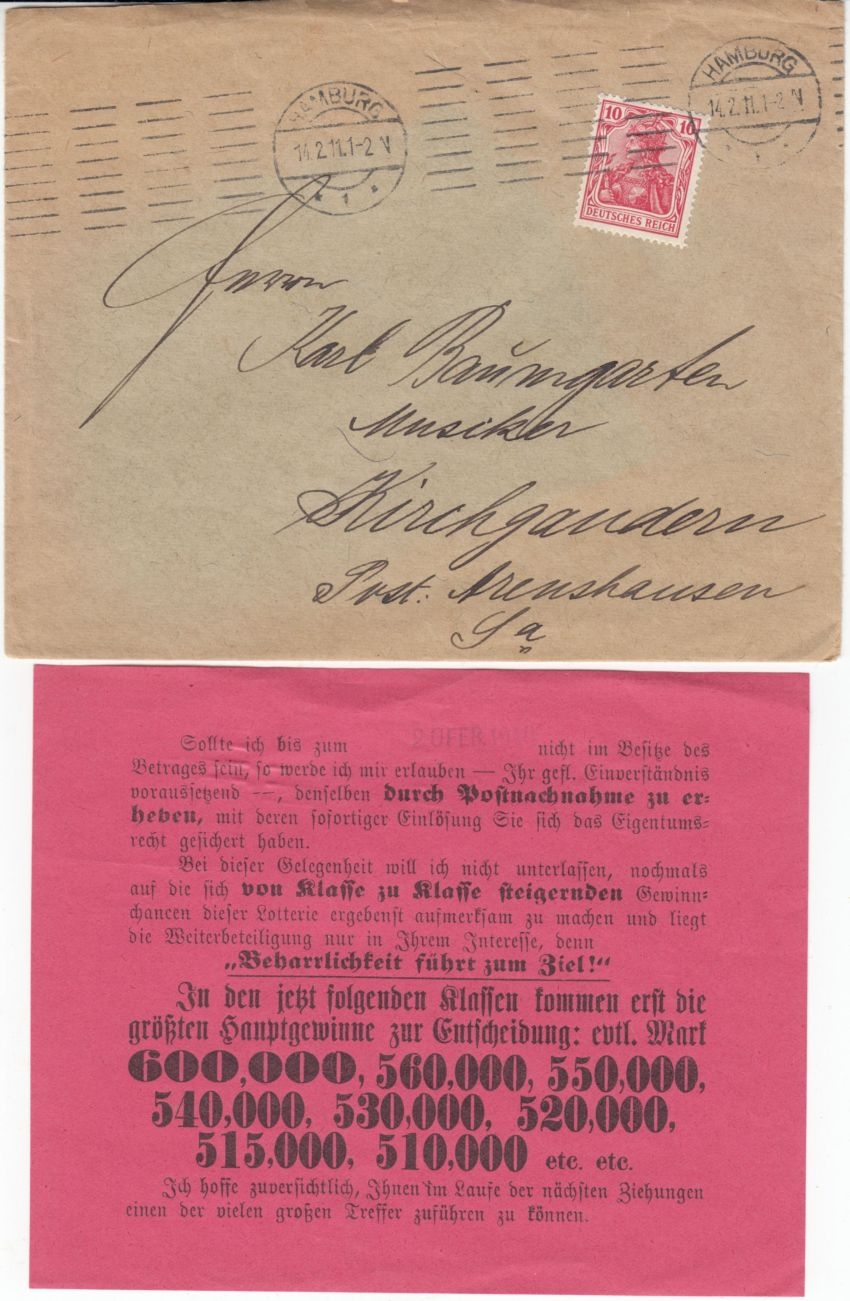 HAMBURG
14.2.11.1-2 V
1
HAMBURG
14.2.11.1-2 V
10 10
DEUTSCHES REICH
Herrn
Karl Baumgarten
Musiker
Kirchgandern
Post: Arenshausen
Sa
Sollte ich bis zum 20 FEB. nicht im Besitze des
Betrages sein, so werde ich mir erlauben — Ihr gefl. Einverständnis
voraussetzend —, denselben durch Postnachnahme zu er-
heben, mit deren sofortiger Einlösung Sie sich das Eigentums-
recht gesichert haben.
Bei dieser Gelegenheit will ich nicht unterlassen, nochmals
auf die sich von Klasse zu Klasse steigernden Gewinn-
chancen dieser Lotterie ergebenst aufmerksam zu machen und liegt
die Weiterbeteiligung nur in Ihrem Interesse, denn
„Beharrlichkeit führt zum Ziel!“
In den jetzt folgenden Klassen kommen erst die
größten Hauptgewinne zur Entscheidung: evtl. Mark
600,000, 560,000, 550,000,
540,000, 530,000, 520,000,
515,000, 510,000 etc. etc.
Ich hoffe zuversichtlich, Ihnen im Laufe der nächsten Ziehungen
einen der vielen großen Treffer zuführen zu können.